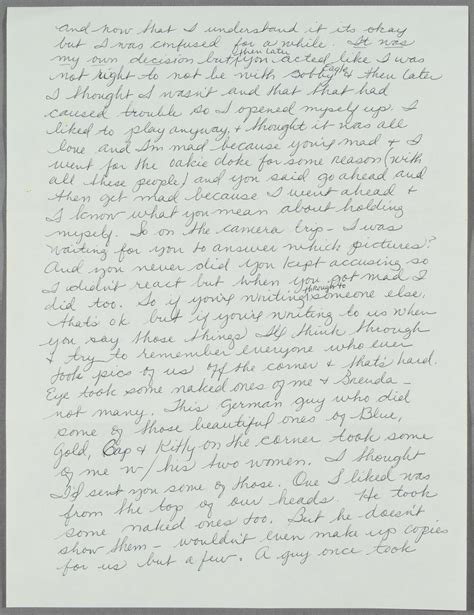 and now that I understand it its okay
but I was confused for a while. It was
my own decision but then later you acted like I was
not right to not be with Bobby Eagle & then later
I thought I wasn't and that that had
caused trouble so I opened myself up. I
liked to play anyway, & thought it was all
love and I'm mad because you're mad & I
went for the oakie doke for some reason (with
all these people) and you said go ahead and
then get mad because I went ahead &
I know what you mean about holding
myself. So on the camera trip - I was
waiting for you to answer which pictures?
And you never did you kept accusing so
I didn't react but when you got mad I
did too. So if you're writing through to someone else,
that's ok but if you're writing to us when
you say those things I'll think through
& try to remember everyone who ever
took pics of us off the corner & that's hard.
Eye took some naked ones of me & Brenda -
not many. This German guy who did
some of those beautiful ones of Blue,
Gold, Cap & Kitty on the corner took some
of me w/ his two women. I thought
I'd sent you some of those. One I liked was
from the top of our heads. He took
some naked ones too. But he doesn't
show them - wouldn't even make up copies
for us but a few. A guy once took